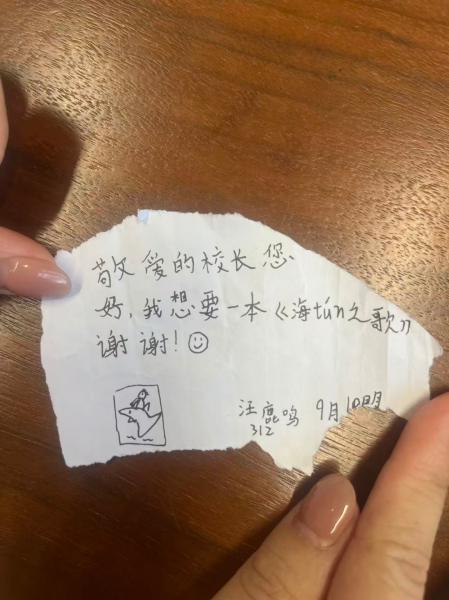 敬爱的校长您
好,我想要一本《海tún之歌》
谢谢!
汪鹿鸣 9月10日
312